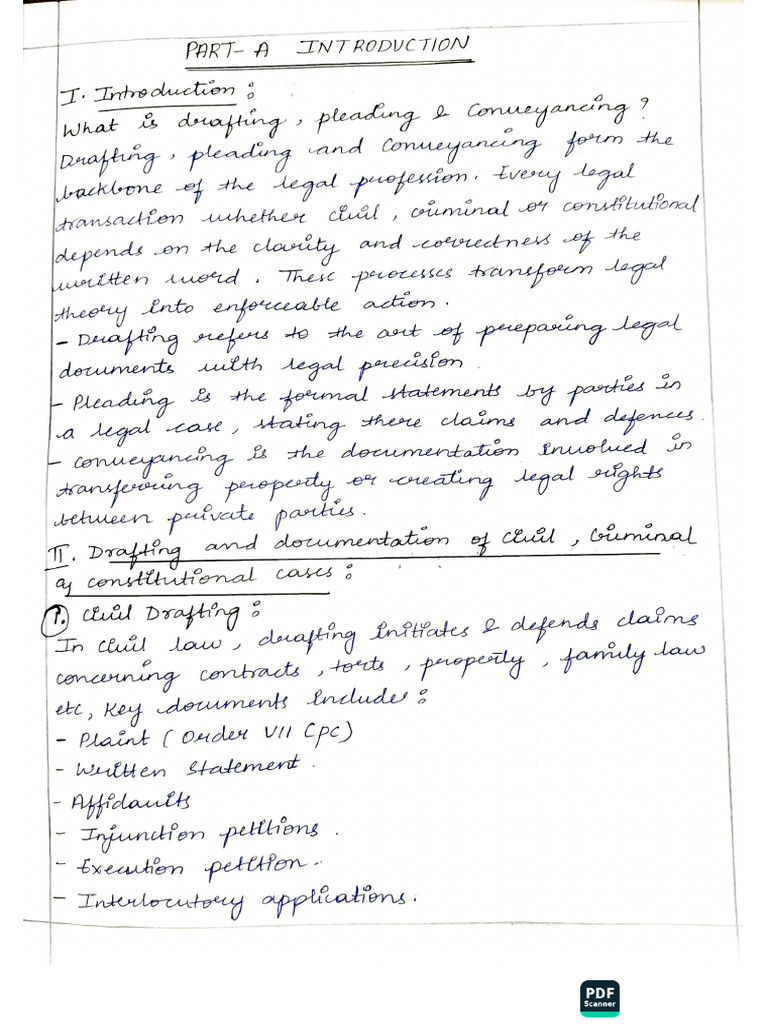 PART- A INTRODUCTION
I. Introduction :
What is drafting, pleading & Conveyancing?
Drafting, pleading and Conveyancing form the
backbone of the legal profession. Every legal
transaction whether civil, criminal or constitutional
depends on the clarity and correctness of the
written word. These processes transform legal
theory into enforceable action.
- Drafting refers to the art of preparing legal
documents with legal precision.
- Pleading is the formal statements by parties in
a legal case, stating there claims and defences.
- Conveyancing is the documentation involved in
transferring property or creating legal rights
between private parties.
II. Drafting and documentation of civil, Criminal
& constitutional cases :
1. Civil Drafting :
In civil law, drafting initiates & defends claims
concerning contracts, torts, property, family law
etc, Key documents include :
- Plaint ( Order VII CPC)
- Written Statement.
- Affidavits
- Injunction petitions.
- Execution petition.
- Interlocutory applications.
PDF
Scanner